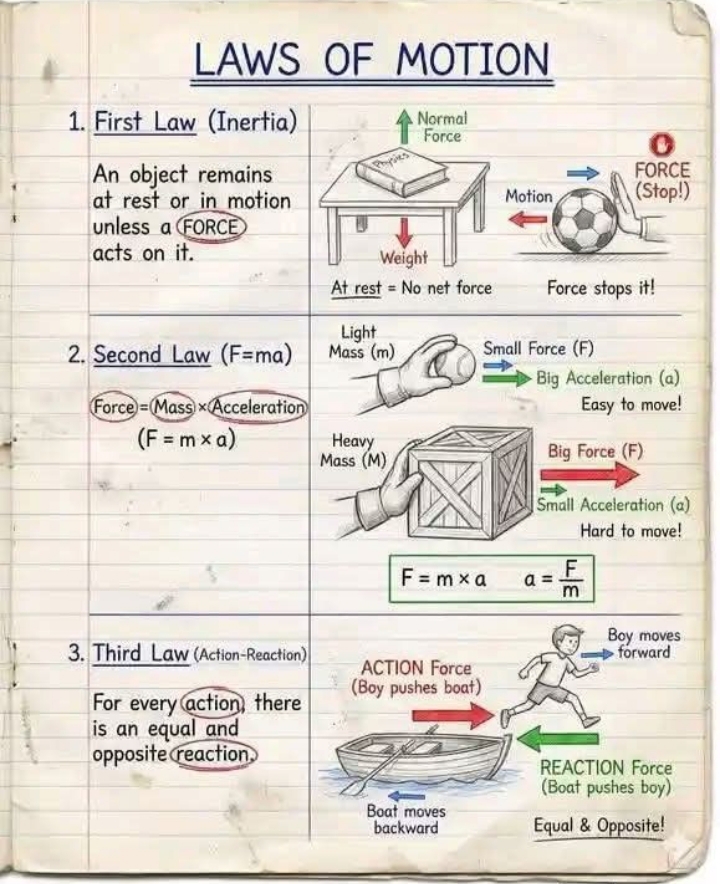 LAWS OF MOTION
1. First Law (Inertia)
An object remains
at rest or in motion
unless a FORCE
acts on it.
Normal
Force
Physics
Weight
At rest = No net force
Motion
FORCE
(Stop!)
Force stops it!
2. Second Law (F=ma)
Force = Mass × Acceleration
(F = m × a)
Light
Mass (m)
Small Force (F)
Big Acceleration (a)
Easy to move!
Heavy
Mass (M)
Big Force (F)
Small Acceleration (a)
Hard to move!
F = m × a a = F/m
3. Third Law (Action-Reaction)
For every action, there
is an equal and
opposite reaction.
ACTION Force
(Boy pushes boat)
Boy moves
forward
REACTION Force
(Boat pushes boy)
Boat moves
backward
Equal & Opposite!